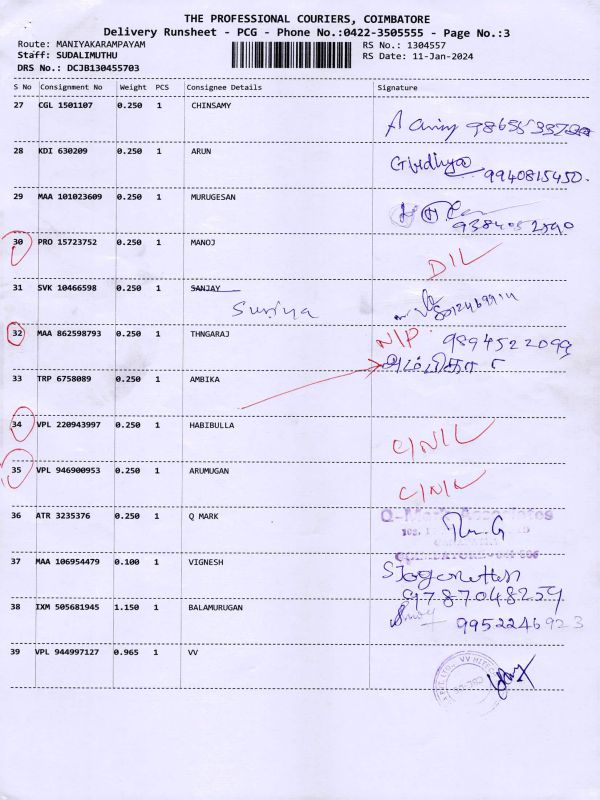 THE PROFESSIONAL COURIERS, COIMBATORE
Delivery Runsheet - PCG - Phone No.:0422-3505555 - Page No.:3
Route: MANIYAKARAMPAYAM RS No.: 1304557
Staff: SUDALIMUTHU RS Date: 11-Jan-2024
DRS No.: DCJB130455703
S No Consignment No Weight PCS Consignee Details Signature
27 CGL 1501107 0.250 1 CHINSAMY
28 KDI 630209 0.250 1 ARUN
9940815450.
29 MAA 101023609 0.250 1 MURUGESAN
30 PRO 15723752 0.250 1 MANOJ
D/L
31 SVK 10466598 0.250 1 SANJAY
Suriya
32 MAA 862598793 0.250 1 THNGARAJ N/P. 9894522099
33 TRP 6758089 0.250 1 AMBIKA
34 VPL 220943997 0.250 1 HABIBULLA
C/N/L
35 VPL 946900953 0.250 1 ARUMUGAN
C/N/L
36 ATR 3235376 0.250 1 Q MARK
37 MAA 106954479 0.100 1 VIGNESH
9787048259
38 IXM 505681945 1.150 1 BALAMURUGAN
9952246923
39 VPL 944997127 0.965 1 VV